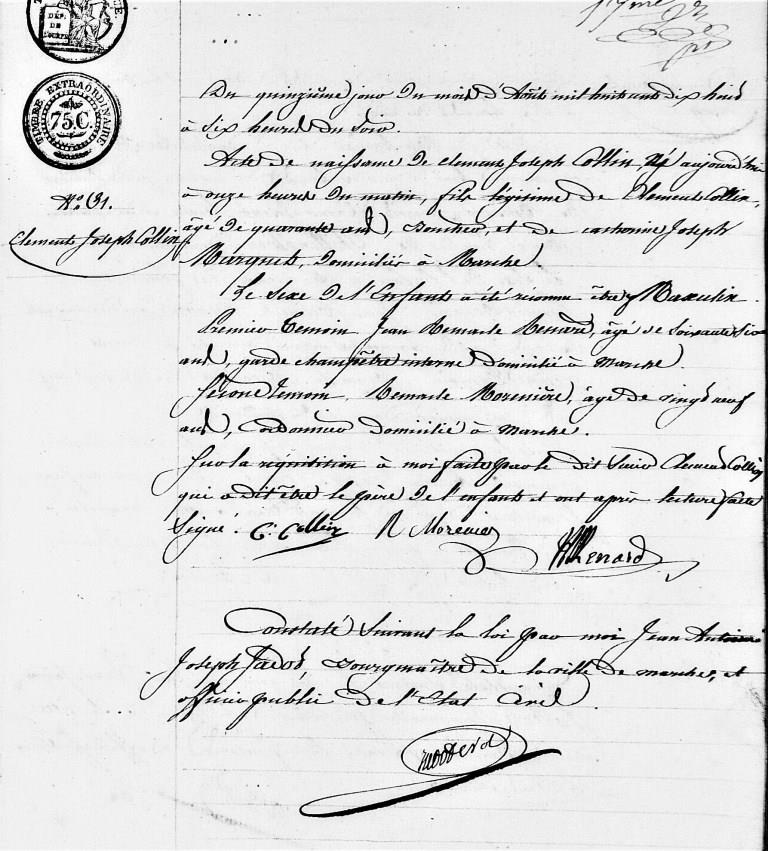 DÉP. DE L'OURTE
TIMBRE EXTRAORDINAIRE
75C.
Du quinzième jour du mois d'Août mil huit cent dix huit
à Six heures du Soir.
Acte de naissance de clement Joseph Collin, Né aujourd'hui
à onze heures du matin, fils légitime de Clement Collin,
âgé de quarante ans, Boucher, et de catherine Joseph
Marquet, Domiciliés à Marche
Le Sexe de l'Enfant a été reconnu être Masculin
Premier Temoin Jean Remacle Renard, âgé de Soixante Six
ans, garde champêtre interne Domicilié à Marche.
Second temoin, Remacle Morenière, âgé de vingt neuf
ans, Cordonnier Domicilié à Marche.
Sur la réquisition à moi faite par le dit Sieur Clement Collin
qui a dit être le père de l'enfant et ont après lecture faite
Signé. C. Collin R Morenier
Renard
Constaté Suivant la loi par moi Jean Antoine
Joseph Jadot, Bourgmaître de la ville de marche, et
officier public de l'Etat Civil.
N.º 31.
Clement Joseph Collin